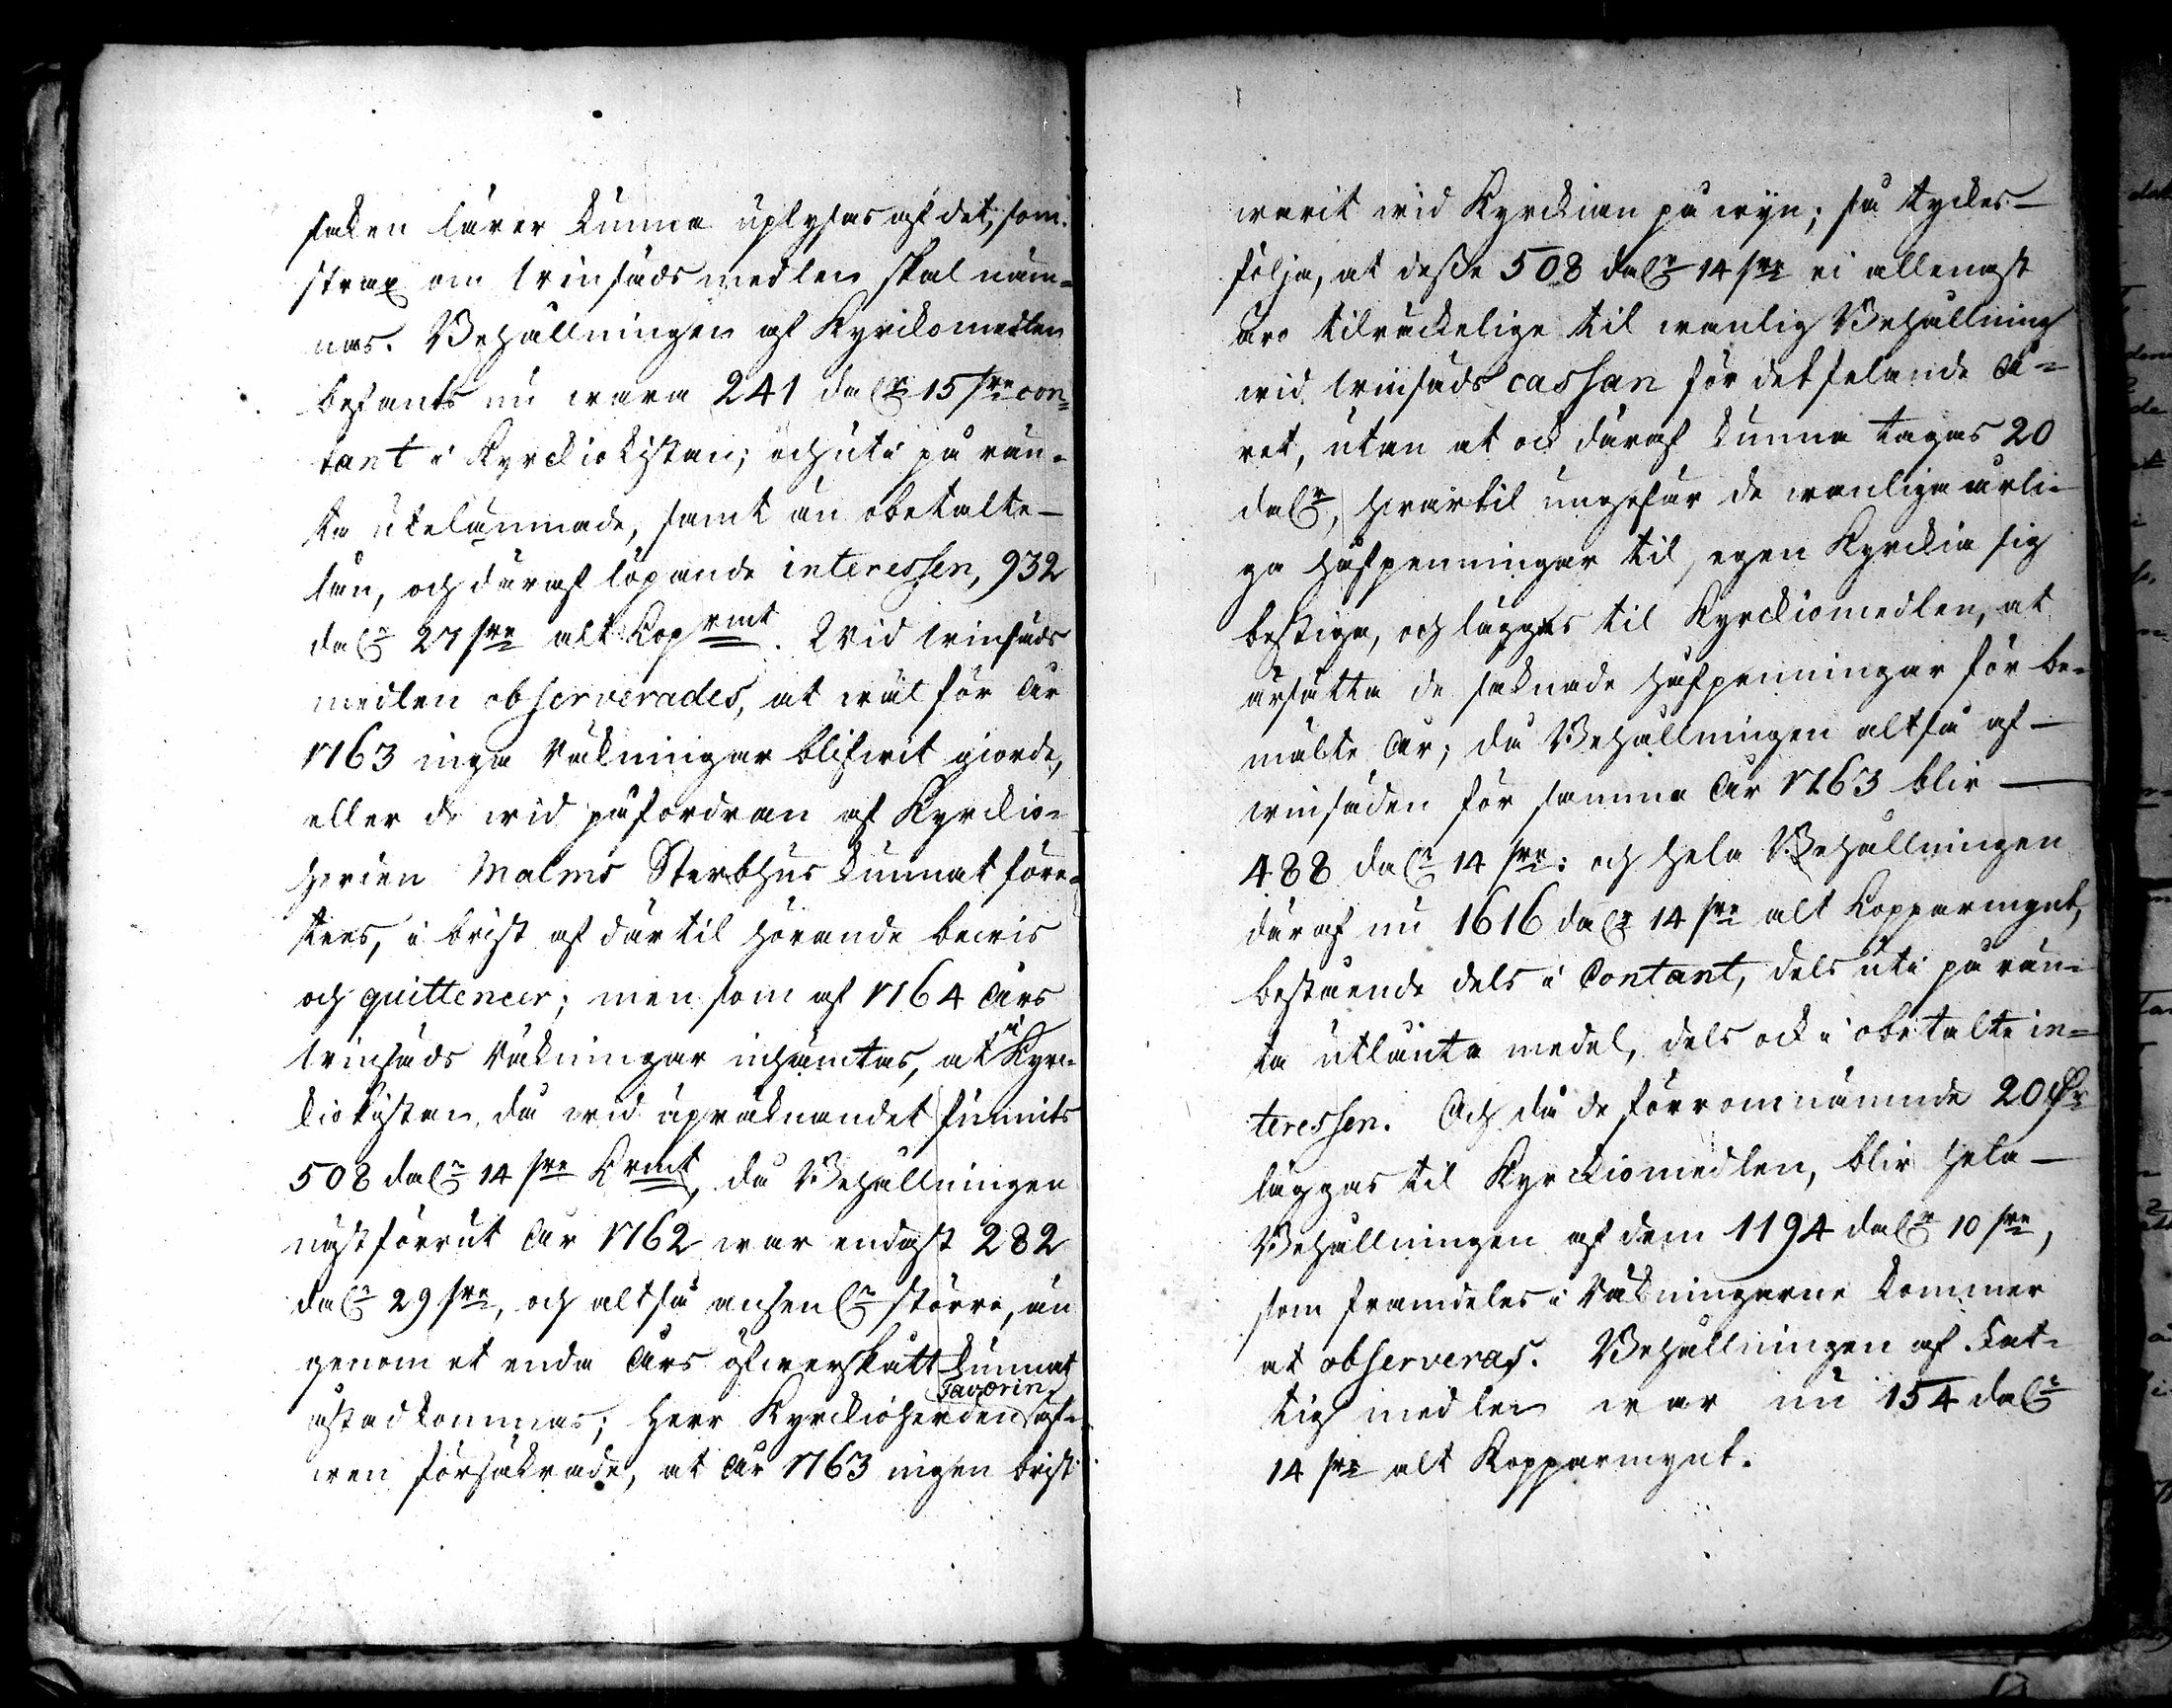 saken lärer kunna uplysas af det, som
strax om winsäds medlen skal näm-
nas. Behållningen af Kyrckomedlen
befants nu wara 241 dalr 15 öre con-
tant i Kyrckiokistan; och uti på rän-
ta utelämnade, samt än obetalte
lån, och däraf löpande interessen, 932
dalr 27 öre alt Koprmt. Wid winsäds
medlen observerades, at wäl för År
1763 inga Räkningar blifwit giorde,
eller de wid påfordran af Kyrckio-
herden Malms Sterbhus kunnat före-
tees, i brist af där til hörande bewis
och quittencer; men som af 1764 Års
winsäds Räkningar inhämtas, at i Kyrc-
kiokistan, då wid upräknandet funnits
508 dalr 14 öre Krmt, då Behållningen
nästförrut År 1762 war endast 282
dalr 29 öre, och altså ansenlr större, än
genom et enda Års öfwerskått kunnat
åstadkommas; Herr Kyrckioherden Favorin äf-
wen försäkrade, at År 1763 ingen brist
warit wid Kyrckian på wijn; så tyckes
följa, at desse 508 dalr 14 öre ei allenast
äro tilräckelige til wanlig Behållning
wid winsäds cassan för det felande Å-
ret, utan at ock däraf kunna tagas 20
dalr, hwartil ungefär de wanliga årli-
ga håfpenningar til egen Kyrckia sig
bestiga, och läggas til Kyrckiomedlen, at
ärsätta de saknade håfpenningar för be-
mälte År; då Behållningen altså af
winsäden för samma År 1763 blir
488 dalr 14 öre: och hela Behållningen
däraf nu 1616 dalr 14 öre alt Kopparmynt,
bestående dels i Contant, dels uti på rän-
ta utlänta medel, dels ock i obetalte in-
teressen. Och då de förromnämnde 20 dr
läggas til Kyrckiomedlen, blir hela
Behållningen af dem 1194 dalr 10 öre,
som framdeles i Räkningarne kommer
at observeras. Behållningen af Fat-
tig medlen war nu 154 dalr
14 öre alt Kopparmynt.